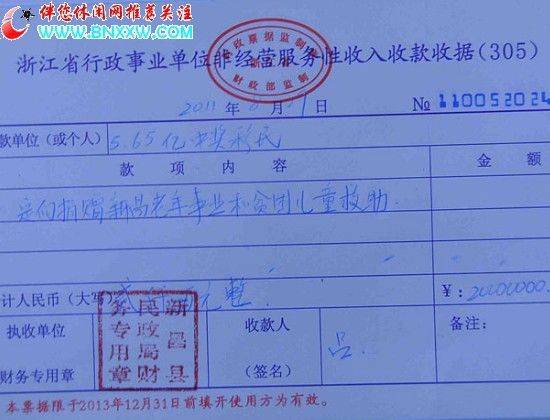 伴您休闲网推荐关注
www.BNXXW.com
浙江省行政事业单位非经营服务性收入收款收据(305)
财政部监制
2011年 月 日
№ 110052024
款单位(或个人) 5.65亿中奖彩民
款项内容 金额
定向捐赠新昌老年事业和贫困儿童救助.
计人民币(大写) 贰 元整 ¥:20000000.
执收单位 收款人 备注:
财务专用章 (签名) 吕.
新昌县民政局财务专用章
本票据限于2013年12月31日前填开使用方为有效。